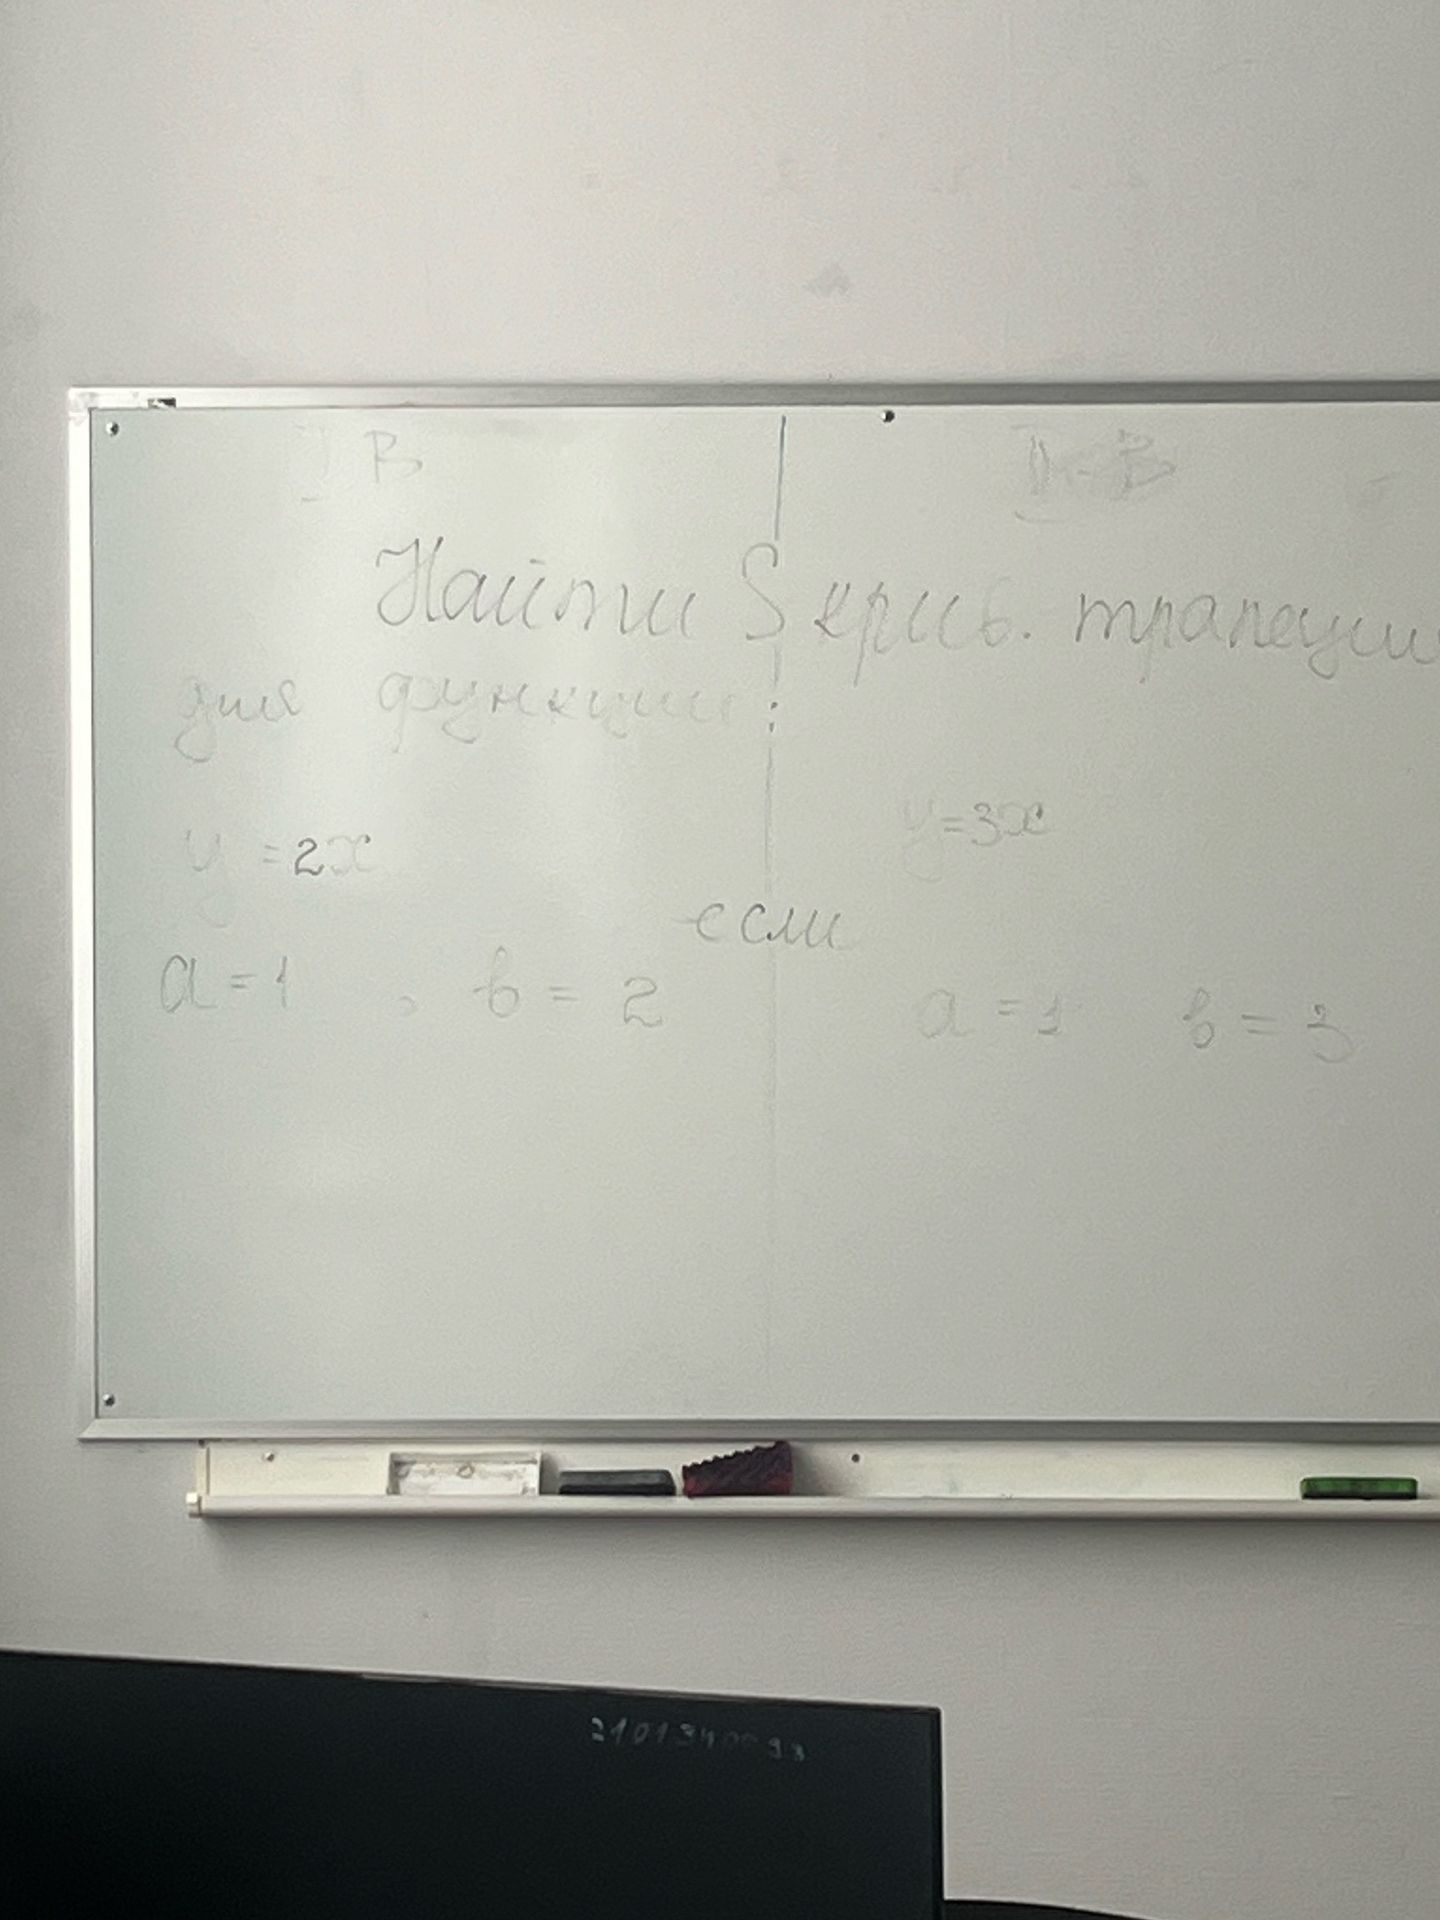 I В
II В
Найти S крив. трапеции
для функции:
y = 2x
y = 3x
если
a = 1 , b = 2
a = 1 b = 3